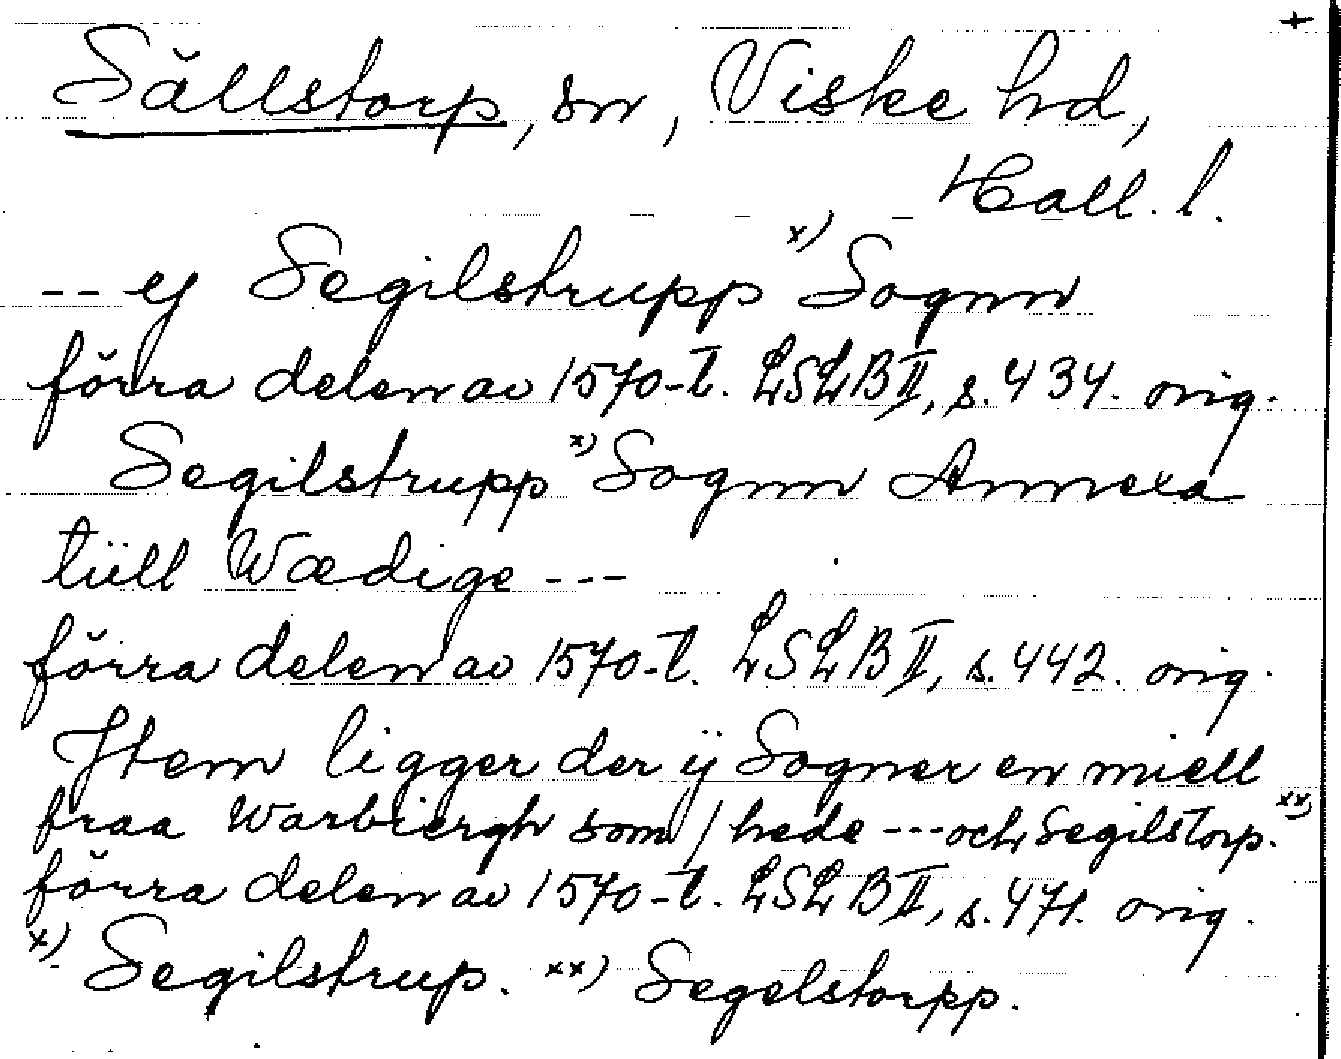 +
Sällstorp, sn, Viske hd,
Hall. l.
-- ej Segilstrupp x) Sognn
förra delen av 1570-t. LSLB II, s. 434. orig.
Segilstrupp x) Sognn Annexa
tüll Wædige ---
förra delen av 1570-t. LSLB II, s. 442. orig.
Item ligger der ÿ Sogner en miell
fraa Warbiergh som / hede --- och Segilstorp. xx)
förra delen av 1570-t. LSLB II, s. 471. orig.
x) Segilstrup. xx) Segelstorpp.